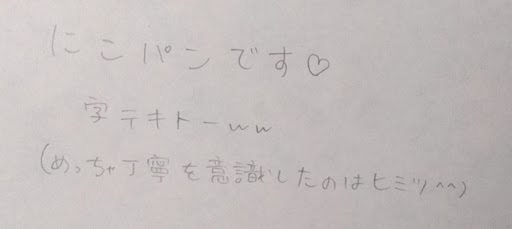 にこパンです♡
字テキトーww
(めっちゃ丁寧を意識したのはヒミツ^^)